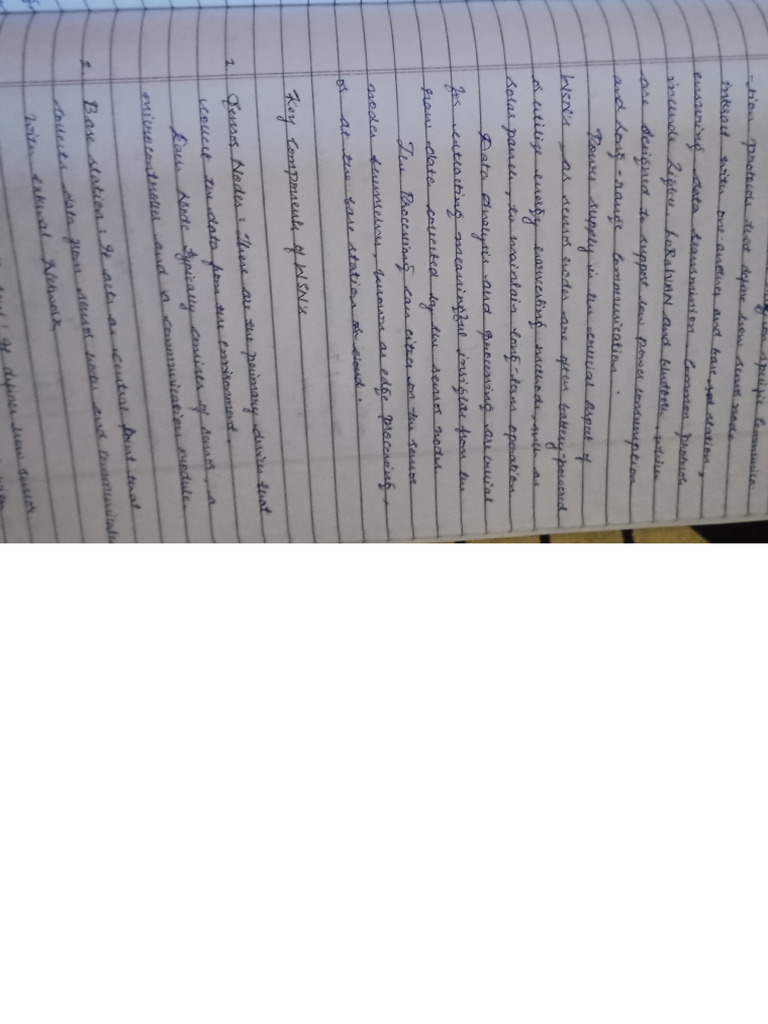 on specific Communica-
-tion protocols that define how sensor node
interact with one-another and base station,
ensuring data transmission Common protocols
include Zigbee, LoRaWAN and bluetooth, which
are designed to support low power consumption
and Long-range communication.
Power supply is the crucial aspect of
WSN's, as sensor nodes are often battery-powered
or utilize energy harvesting methods, such as
solar panels, to maintain long-term operation
Data Analysis and processing are crucial
for extracting meaningful insights from the
raw data collected by the sensor nodes
The Processing can either on the sensor
nodes themselves, known as edge processing,
or at the base station or cloud.
Key Components of WSN's
1. Sensor Nodes: These are the primary device that
collect the data from the environment.
Each Node typically consists of sensor, a
microcontroller and a communication module
2. Base station: It acts as central point that
collects data from sensor nodes and communicate
with external Network
It defines how sensor